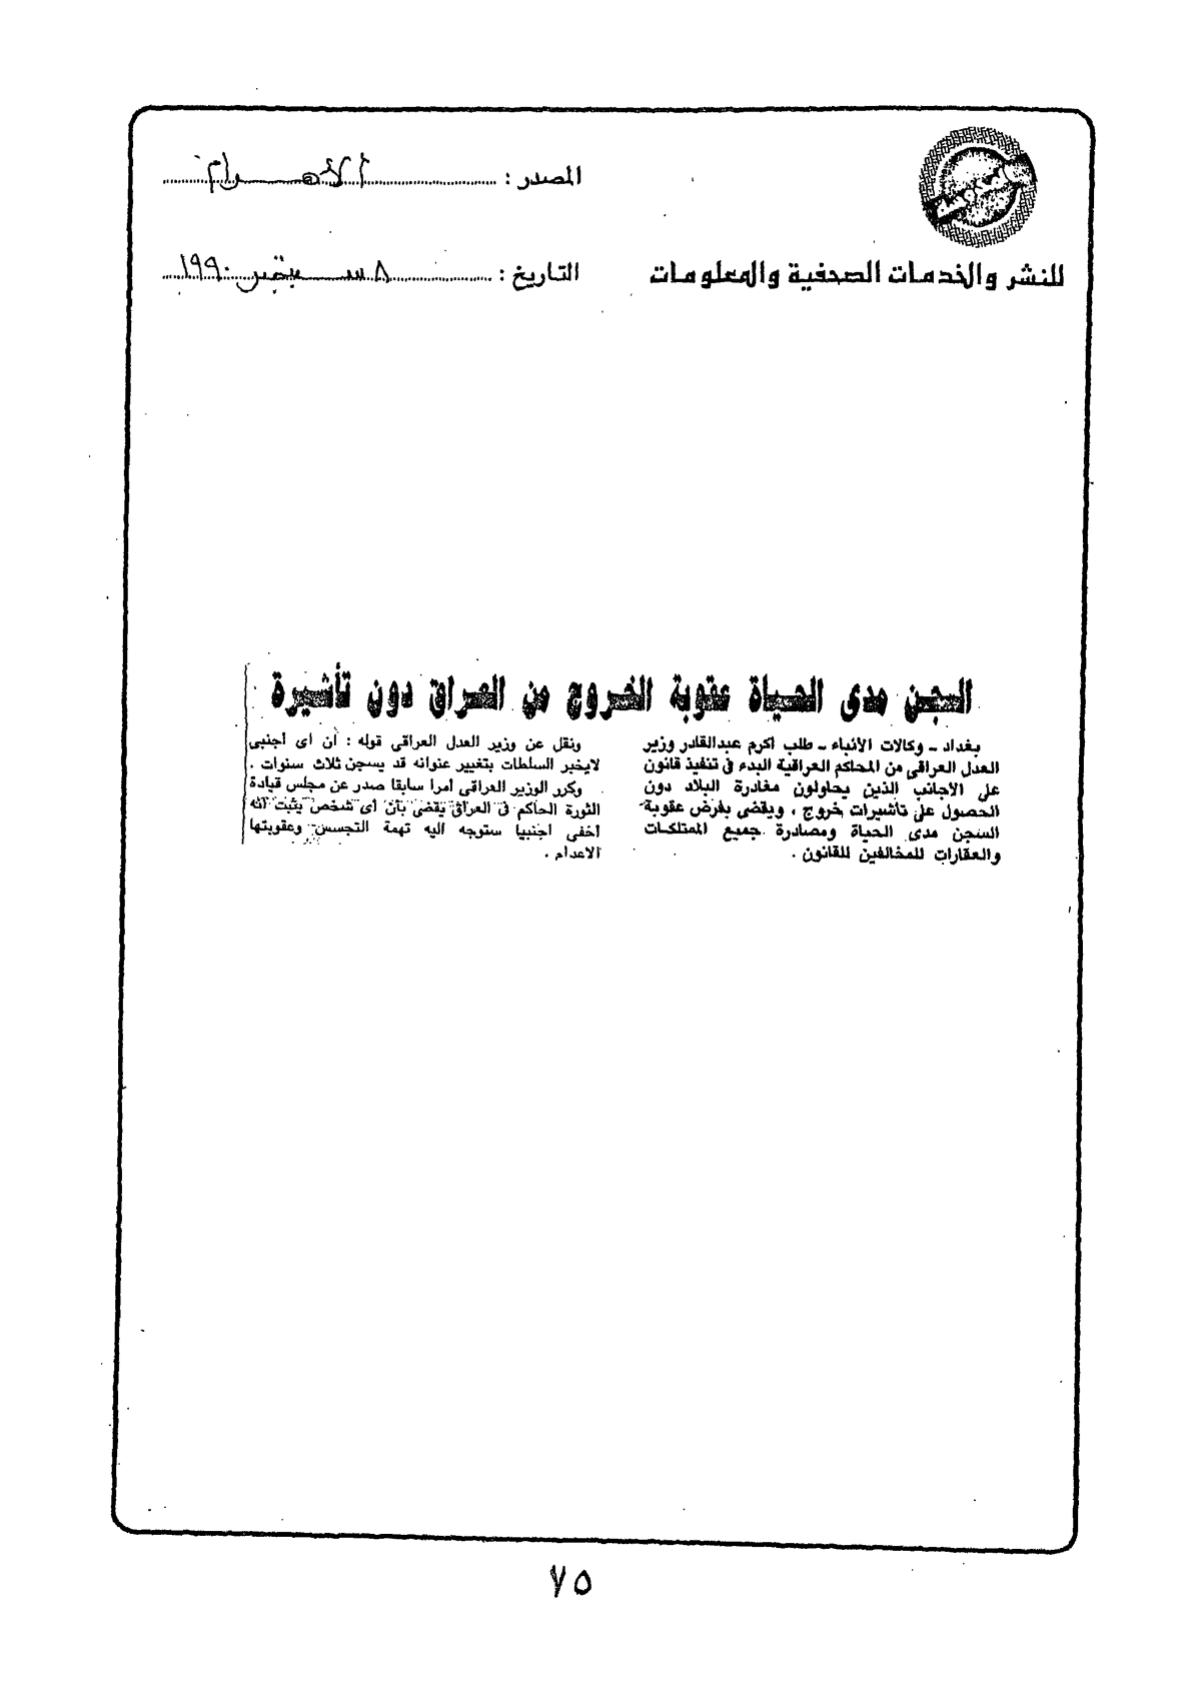 المصدر : الأهرام
للنشر والخدمات الصحفية والمعلومات
التاريخ : ٨ سبتمبر ١٩٩٠
السجن مدى الحياة عقوبة الخروج من العراق دون تأشيرة
بغداد - وكالات الأنباء - طلب اكرم عبدالقادر وزير
العدل العراقى من المحاكم العراقية البدء فى تنفيذ قانون
على الاجانب الذين يحاولون مغادرة البلاد دون
الحصول على تأشيرات خروج ، ويقضى بفرض عقوبة
السجن مدى الحياة ومصادرة جميع الممتلكات
والعقارات للمخالفين للقانون .
ونقل عن وزير العدل العراقى قوله : أن اى أجنبى
لايخبر السلطات بتغيير عنوانه قد يسجن ثلاث سنوات .
وكرر الوزير العراقى أمرا سابقا صدر عن مجلس قيادة
الثورة الحاكم فى العراق يقضى بأن أى شخص يثبت أنه
أخفى اجنبيا ستوجه اليه تهمة التجسس وعقوبتها
الاعدام .
٧٥